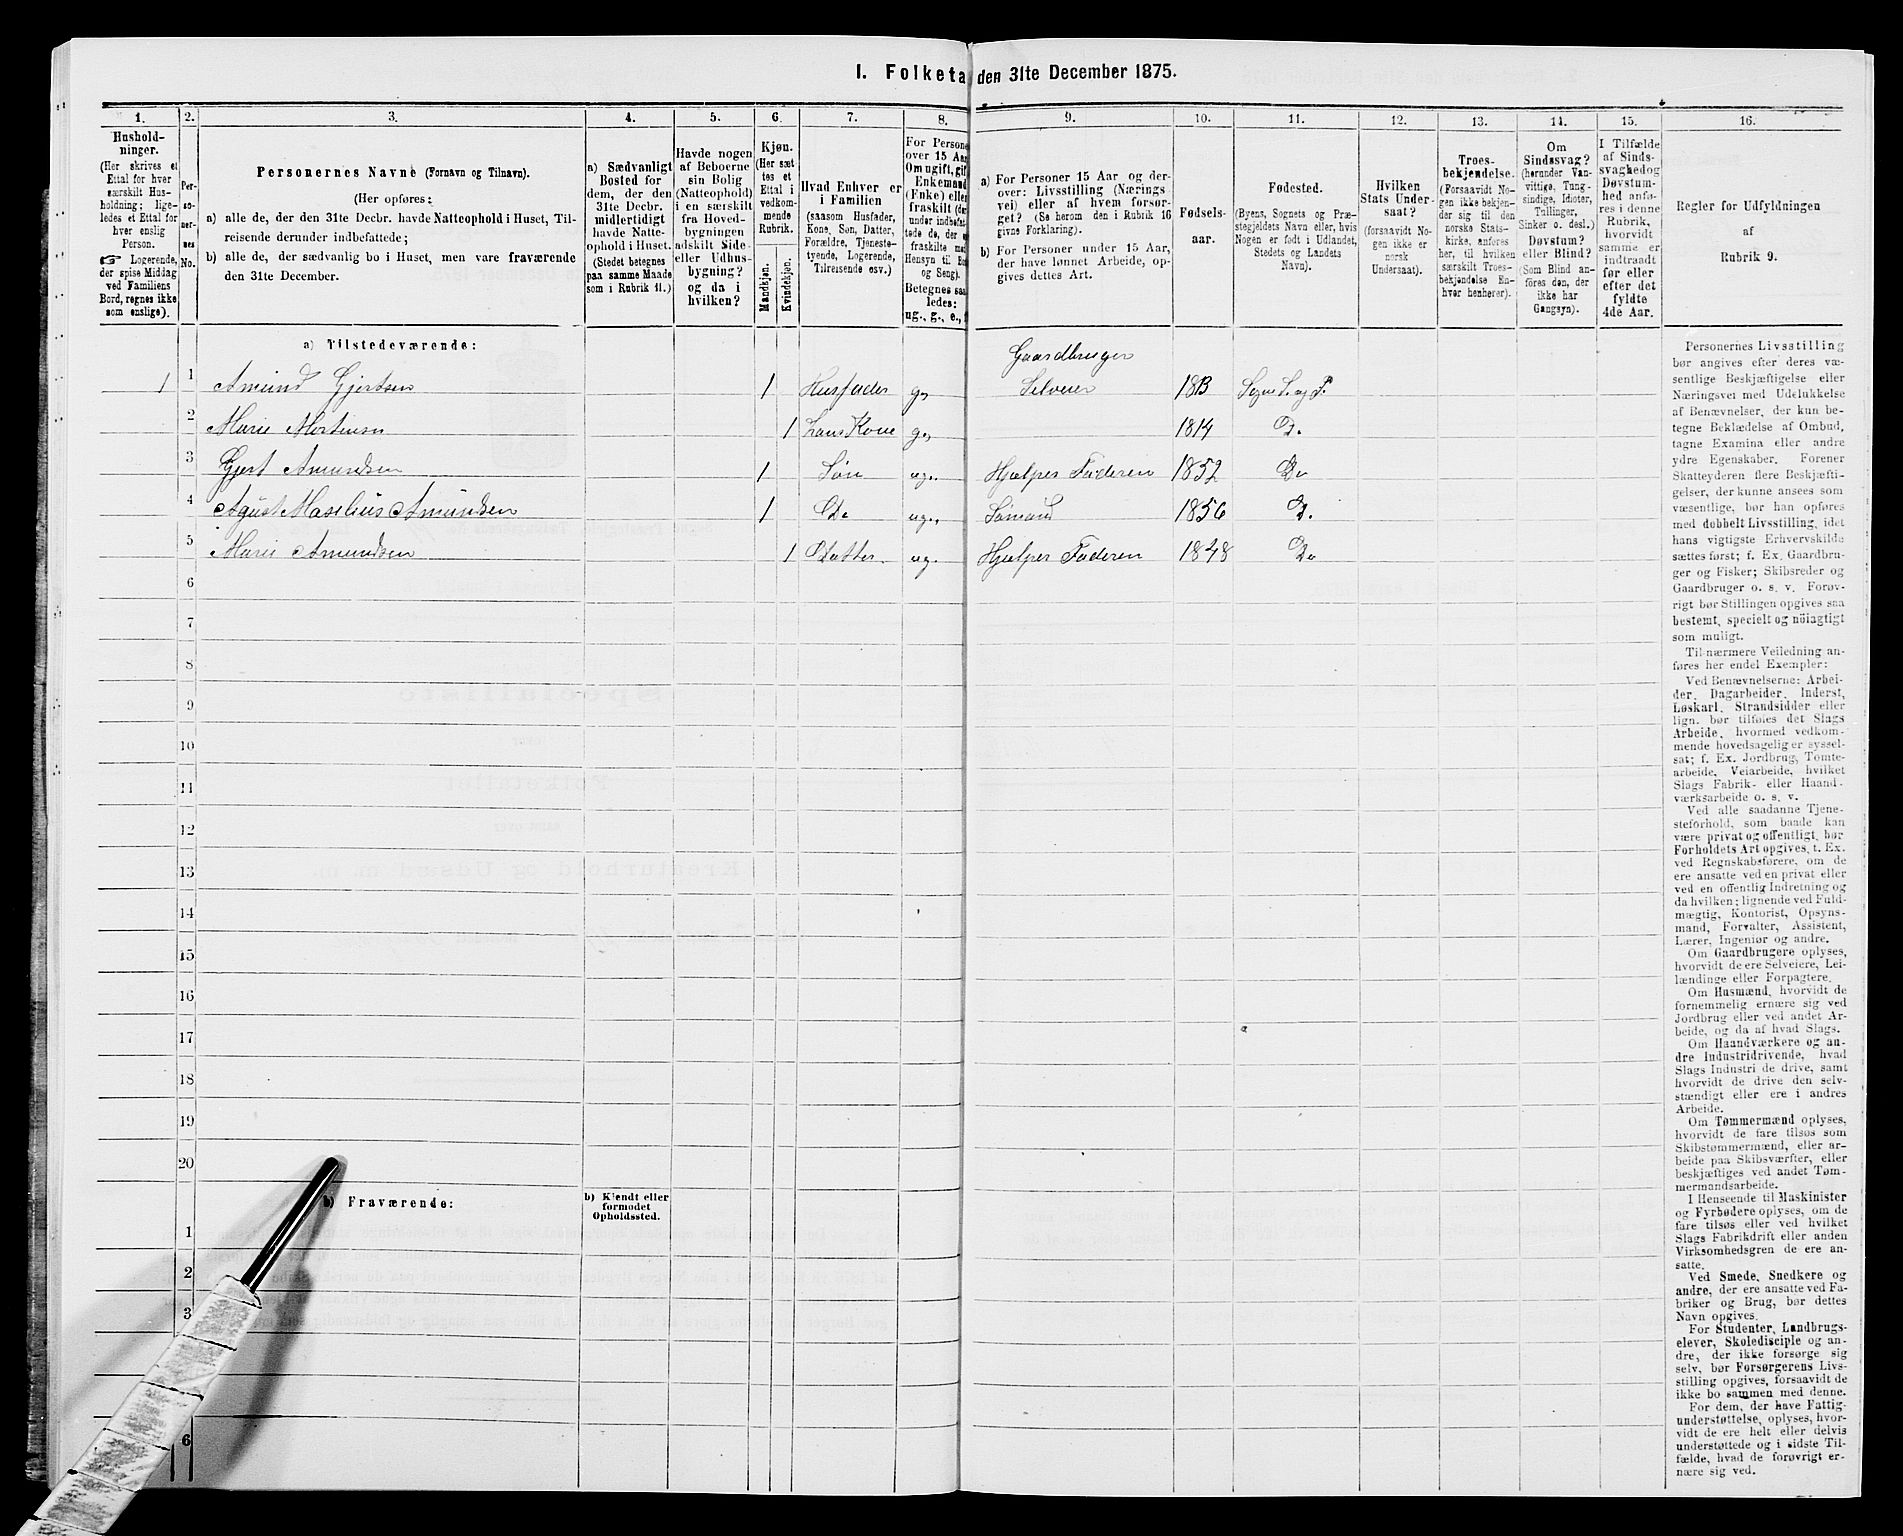 I. Folketa den 31te December 1875.
1. 2. 3. 4. 5. 6. 7. 8. 9. 10. 11. 12. 13. 14. 15. 16.
Hushold-
ninger.
(Her skrives et
Ettal for hver
særskilt Hus-
holdning; lige-
ledes et Ettal for
hver enslig
Person.
☞ Logerende,
der spise Middag
ved Familiens
Bord, regnes ikke
som enslige).
Per-
so-
ner-
nes
No.
Personernes Navne (Fornavn og Tilnavn).
(Her opføres:
a) alle de, der den 31te Decbr. havde Natteophold i Huset, Til-
reisende derunder indbefattede;
b) alle de, der sædvanlig bo i Huset, men vare fraværende
den 31te December.
a) Sædvanligt
Bosted for
dem, der den
31te Decbr.
midlertidigt
havde Natte-
ophold i Huset.
(Stedet betegnes
paa samme Maade
som i Rubrik 11.)
Havde nogen
af Beboerne
sin Bolig
(Natteophold)
i en særskilt
fra Hoved-
bygningen
adskilt Side-
eller Udhus-
bygning?
og da i
hvilken?
Kjøn.
(Her sæt
tes et
Ettal i
vedkom-
mende
Rubrik.
Mandkjøn.
Kvindekjøn.
Hvad Enhver er
i Familien
(saasom Husfader,
Kone, Søn, Datter,
Forældre, Tjeneste-
tyende, Logerende,
Tilreisende osv.)
For Persone
over 15 Aar
Om ugift, gif
Enkemand
(Enke) eller
fraskilt (de
under indbefat
tede de, der
fraskilte m
Hensyn til Bo
og Seng).
Betegnes saa
ledes:
ug., g., e., f
a) For Personer 15 Aar og der-
over: Livsstilling (Nærings
vei) eller af hvem forsør-
get? (Se herom den i Rubrik 16
givne Forklaring).
b) For Personer under 15 Aar,
der have lønnet Arbeide, op-
gives dettes Art.
Fødsels-
aar.
Fødested.
(Byens, Sognets og Præ-
stegjeldets Navn eller, hvis
Nogen er født i Udlandet,
Stedets og Landets
Navn).
Hvilken
Stats Under-
saat?
(forsaavidt No-
gen ikke er
norsk
Undersaat).
Troes-
bekjendelse.
(Forsaavidt No-
gen ikke bekjen-
der sig til den
norske Stats-
kirke, anføres
her, til hvilken
særskilt Troes-
bekjendelse En-
hver henhører).
Om
Sindssvag?
(herunder Van-
vittige, Tung-
sindige, Idioter,
Tullinger,
Sinker o. desl.)
Døvstum?
eller Blind?
(Som Blind an-
føres den, der
ikke har
Gangsyn).
I Tilfælde
af Sinds-
svaghedog
Døvstum-
hed anfø-
res i denne
Rubrik,
hvorvidt
samme er
indtraadt
før eller
efter det
fyldte
4de Aar.
Regler for Udfyldningen
af
Rubrik 9.
a) Tilstedeværende:
Gaardbruger
1 1 Amund Gjertsen 1 Husfader g. Selveier 1813 Sogne S. og P.
2 Marie Mortensen 1 hans Kone g. 1814 D.
3 Gjert Amundsen 1 Søn ug. Hjælper Faderen 1852 Do
4 Agust Maselius Amundsen 1 Do ug. Sømand 1856 D.
5 Marie Amundsen 1 Datter ug. Hjælper Faderen 1848 Do
6
7
8
9
10
11
12
13
14
15
16
17
18
19
20
b) Fraværende:
b) Kjendt eller
formodet
Opholdssted.
1
2
3
6
Personernes Livsstilling
bør angives efter deres væ-
sentlige Beskjæftigelse eller
Næringsvei med Udelukkelse
af Benævnelser, der kun be-
tegne Beklædelse af Ombud,
tagne Examina eller andre
ydre Egenskaber. Forener
Skatteyderen flere Beskjæfti-
gelser, der kunne ansees som
væsentlige, bør han opføres
med dobbelt Livsstilling, idet
hans vigtigste Erhvervskilde
sættes først; f. Ex. Gaardbru-
ger og Fisker; Skibsreder og
Gaardbruger o. s. v. Forøv-
rigt bør Stillingen opgives saa
bestemt, specielt og nöiagtigt
som muligt.
Til nærmere Veiledning an-
føres her endel Exempler:
Ved Benævnelserne: Arbei-
der, Dagarbeider, Inderst,
Løskarl, Strandsidder eller
lign. bør tilføies det Slags
Arbeide, hvormed vedkom-
mende hovedsagelig er syssel-
sat; f. Ex. Jordbrug, Tomte-
arbeide, Veiarbeide, hvilket
Slags Fabrik- eller Haand-
værksarbeide o. s. v.
Ved alle saadanne Tjene-
steforhold, som baade kan
være privat og offentligt, bør
Forholdets Art opgives, f. Ex.
ved Regnskabsførere, om de
ere ansatte ved en privat eller
ved en offentlig Indretning og
da hvilken; lignende ved Fuld-
mægtig, Kontorist, Opsyns-
mand, Forvalter, Assistent,
Lærer, Ingeniør og andre.
Om Gaardbrugere oplyses,
hvorvidt de ere Selveiere, Lei-
lændinge eller Forpagtere.
Om Husmænd, hvorvidt de
fornemmelig ernære sig ved
Jordbrug eller ved andet Ar-
beide, og da af hvad Slags.
Om Haandværkere og an-
dre Industridrivende, hvad
Slags Industri de drive, samt
hvorvidt de drive den selv-
stændigt eller ere i andres
Arbeide.
Om Tømmermænd oplyses,
hvorvidt de fare tilsøs som
Skibstømmermænd, eller ar-
beide paa Skibsværfter, eller
beskjæftiges ved andet Tøm-
mermandsarbeide.
I Henseende til Maskinister
og Fyrbødere oplyses, om de
fare tilsøs eller ved hvilket
Slags Fabrikdrift eller anden
Virksomhedsgren de ere an-
satte.
Ved Smede, Snedkere og
andre, der ere ansatte ved Fa-
briker og Brug, bør dettes
Navn opgives.
For Studenter, Landbrugs-
elever, Skoledisciple og an-
dre, der ikke forsørge sig
selv, bør Forsørgerens Livs-
stilling opgives, forsaavidt de
ikke bo sammen med denne.
For dem, der have Fattig-
understøttelse, oplyses, hvor-
vidt de ere helt eller delvis
understøttede og i sidste Til-
fælde, hvad de forøvrigt er-
nære sig ved.